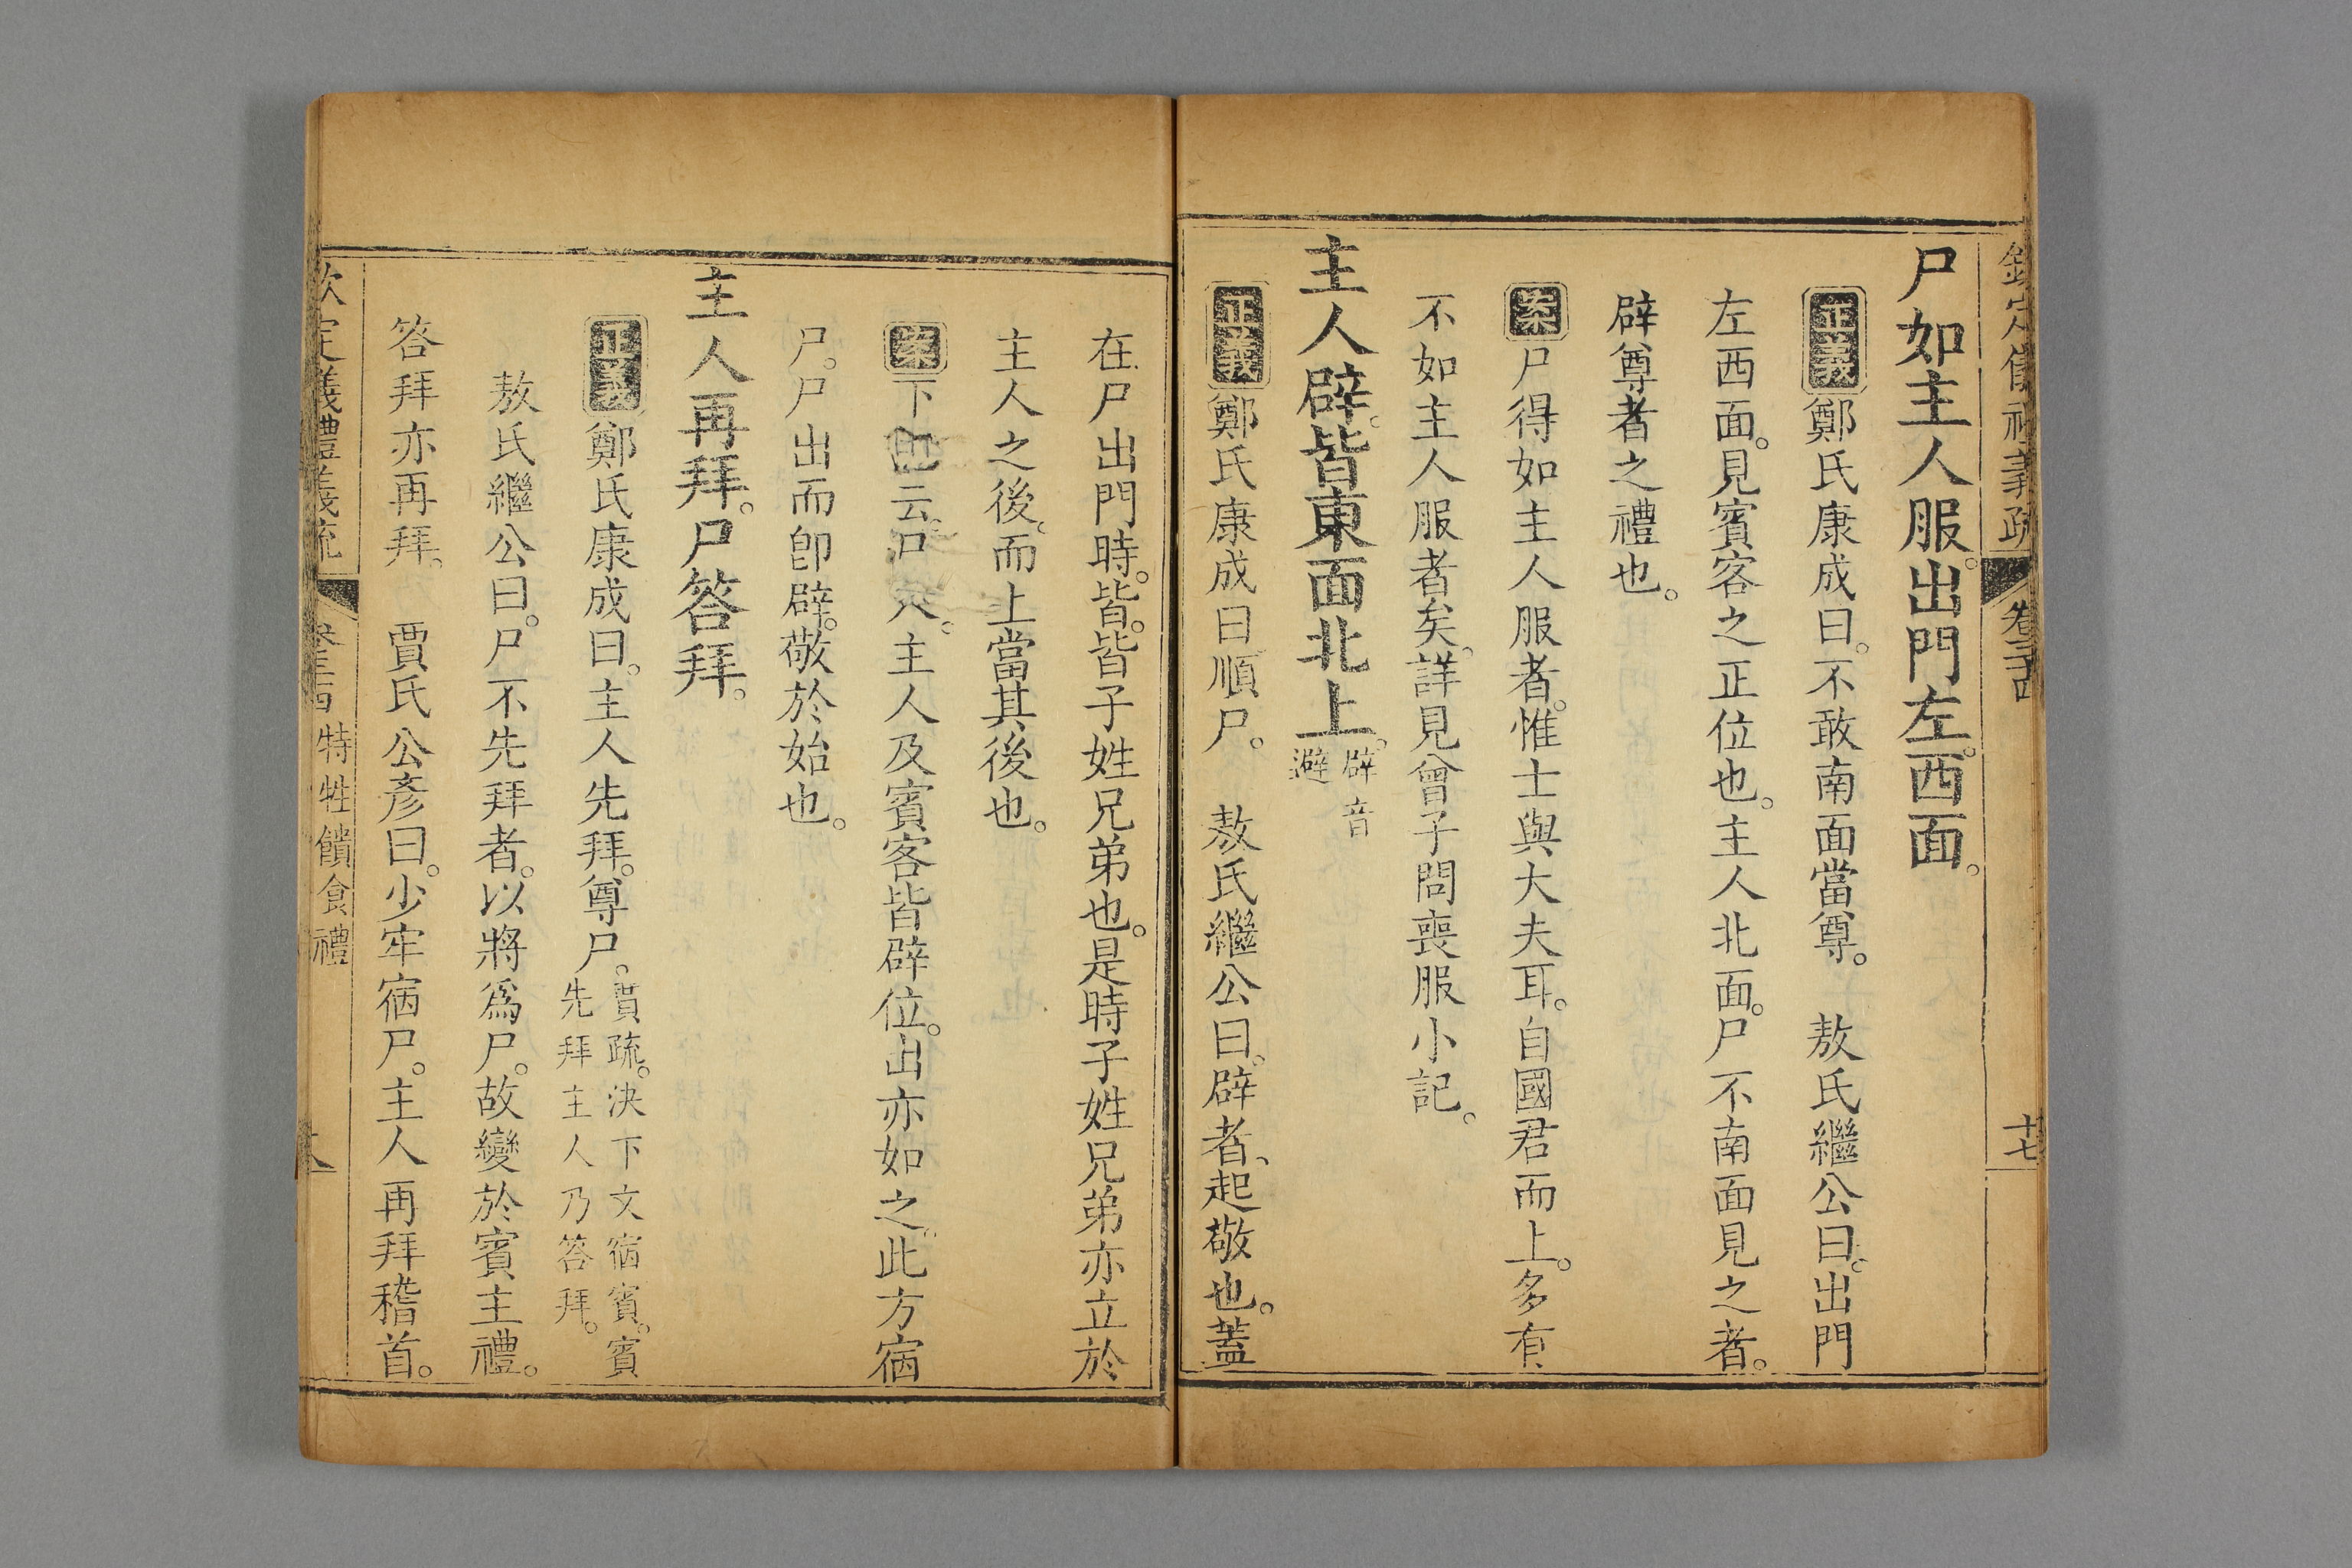 欽定儀禮義疏 卷三十四 十七
尸如主人服。出門左。西面。
正義鄭氏康成曰。不敢南面當尊。 敖氏繼公曰。出門
左西面。見賓客之正位也。主人北面。尸不南面見之者。
辟尊者之禮也。
案尸得如主人服者。惟士與大夫耳。自國君而上。多有
不如主人服者矣。詳見曾子問喪服小記。
主人辟。皆東面北上。辟音
避
正義鄭氏康成曰順尸。 敖氏繼公曰。辟者、起敬也。蓋
在尸出門時。皆。皆子姓兄弟也。是時子姓兄弟亦立於
主人之後。而上當其後也。
案下云。尸入。主人及賓客皆辟位。出亦如之。此方宿
尸。尸出而卽辟。敬於始也。
主人再拜。尸答拜。
正義鄭氏康成曰。主人先拜。尊尸。賈疏。決下文宿賓。賓
先拜主人乃答拜。
敖氏繼公曰。尸不先拜者。以將爲尸。故變於賓主禮。
答拜亦再拜。 賈氏公彥曰。少牢宿尸。主人再拜稽首。
欽定儀禮義疏 卷三十四 特牲饋食禮